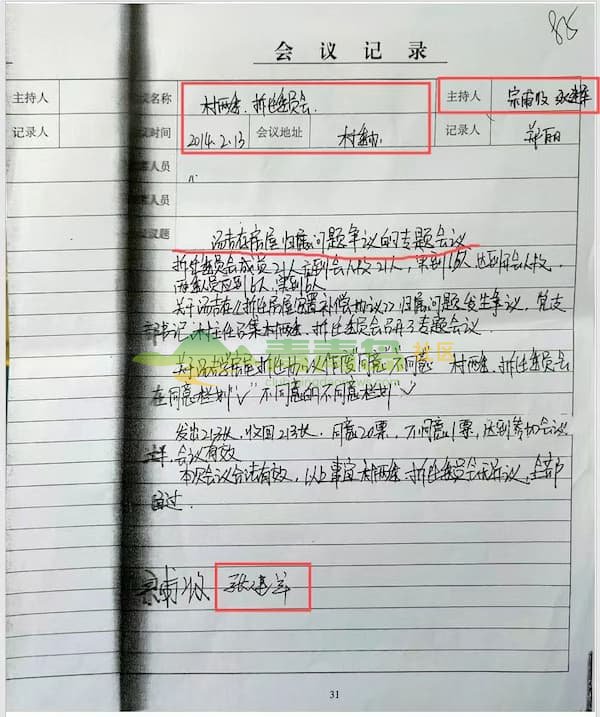 85
会议记录
主持人 议名称 村两委、拆迁委员会 主持人 宗甫收 张建军
记录人 议时间 2014.2.13 会议地址 村委办 记录人 郑丽
人员
人员
议题 汤吉在房屋归属问题争议的专题会议
拆迁委员会成员21人应到会人数21人,实到16人,达到开会人数,
两委人员应到6人,实到6人
关于汤吉在《拆迁房屋安置补偿协议》归属问题发生争议,党支
部书记、村主任召集村两委、拆迁委员会召开了专题会议.
房屋拆迁协议作废"同意""不同意" 村两委、拆迁委员会
在同意栏划"√" 不同意的不同意栏划"√"
发出21张,收回21张,同意20票,不同意1票,达到参加会议
会议有效
本次会议合法有效,以上事宜村两委、拆迁委员会无异议,全部
通过.
宗甫收 张建军
青青岛社区
31